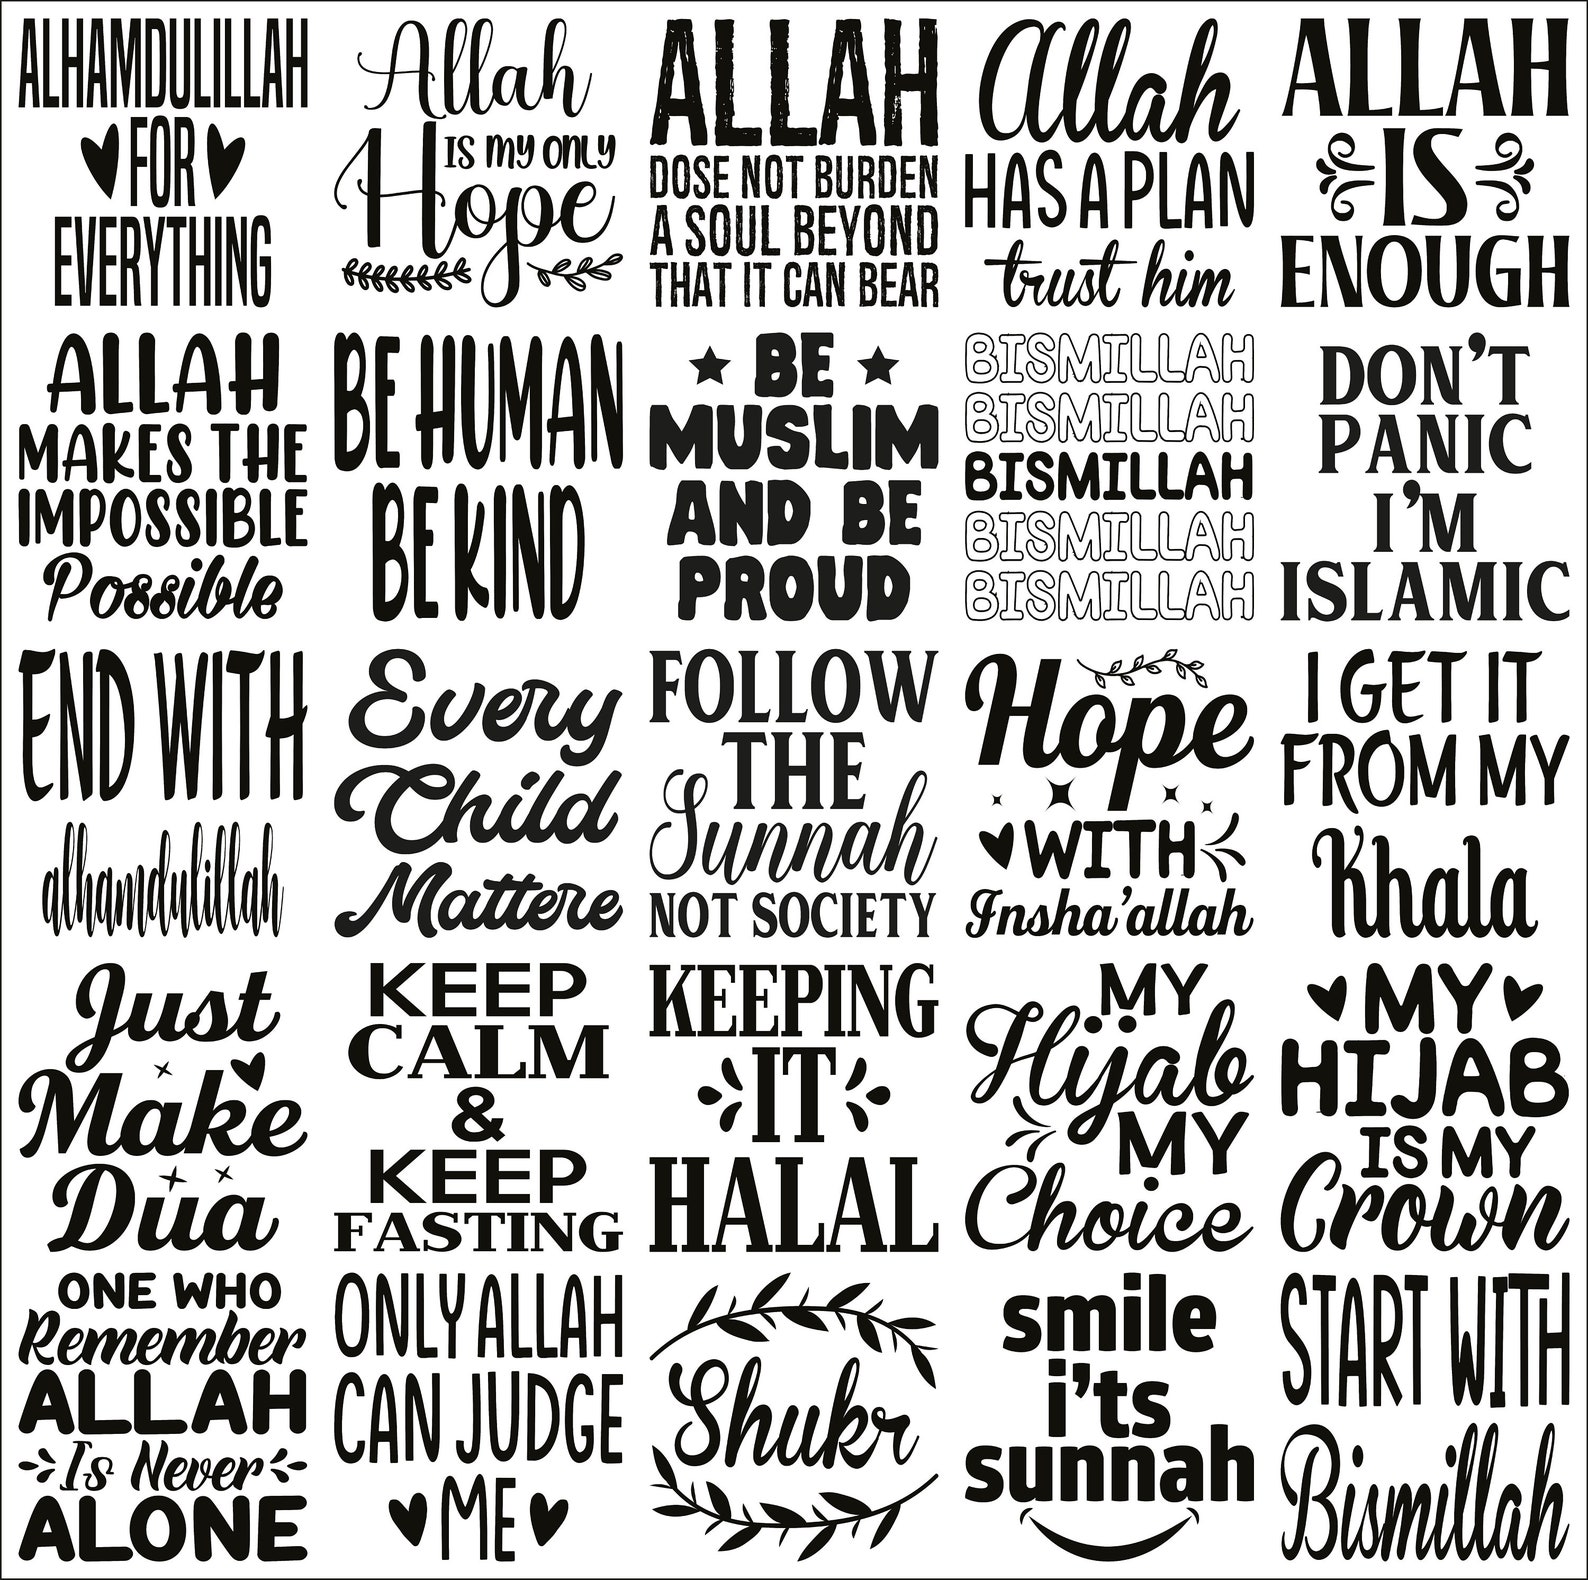 ALHAMDULILLAH
FOR
EVERYTHING
Allah
IS MY ONLY
Hope
ALLAH
DOSE NOT BURDEN
A SOUL BEYOND
THAT IT CAN BEAR
Allah
HAS A PLAN
trust him
ALLAH
IS
ENOUGH
ALLAH
MAKES THE
IMPOSSIBLE
Possible
BE HUMAN
BE KIND
BE
MUSLIM
AND BE
PROUD
BISMILLAH
BISMILLAH
BISMILLAH
BISMILLAH
BISMILLAH
DON'T
PANIC
I'M
ISLAMIC
END WITH
alhamdulillah
Every
Child
Mattere
FOLLOW
THE
Sunnah
NOT SOCIETY
Hope
WITH
Insha'allah
I GET IT
FROM MY
Khala
Just
Make
Dua
KEEP
CALM
&
KEEP
FASTING
KEEPING
IT
HALAL
MY
Hijab
MY
Choice
MY
HIJAB
IS MY
Crown
ONE WHO
Remember
ALLAH
Is Never
ALONE
ONLY ALLAH
CAN JUDGE
ME
Shukr
smile
i'ts
sunnah
START WITH
Bismillah